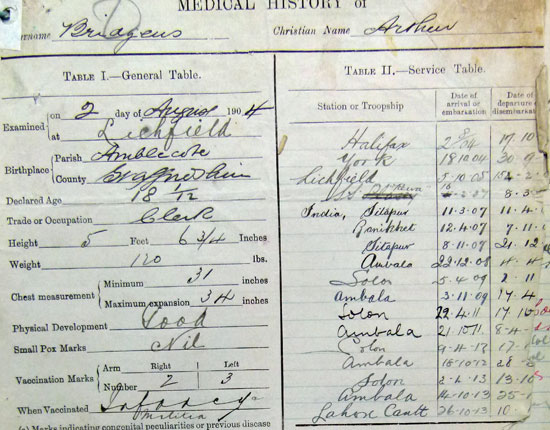 MEDICAL HISTORY of
Surname Bridgens Christian Name Arthur
TABLE I.—General Table.
Examined on 2 day of August 1904
at Lichfield
Birthplace Parish Amblecote
County
Declared Age 18 1/12
Trade or Occupation Clerk
Height 5 Feet 6 3/4 Inches
Weight 120 lbs.
Chest measurement Minimum 31 inches
Maximum expansion 34 inches
Physical Development Good
Small Pox Marks Nil
Vaccination Marks Arm Right Left
Number 2 3
When Vaccinated Infancy
Militia
(a) Marks indicating congenital peculiarities or previous disease
TABLE II.—Service Table.
Station or Troopship Date of arrival or embarkation Date of departure disembarkation
Halifax 17 10
York 18 10 04 30 9
Lichfield 5 10 05
8 3
India, Sitapur 11.3.07 11.4
Ranikhet 12.4.07 7.11
Sitapur 8.11.07 21.12
Ambala 22.12.08 4.4
Solon 5.4.09 2.11
Ambala 3.11.09 17.4
Solon 17.10
Ambala 21.10.11 8.4
Solon 9.4.12 17
Ambala 18.10.12 28
Solon 2.4.13 13.10
Ambala 14.10.13 25
Lahore Cantt 26.10.13 10